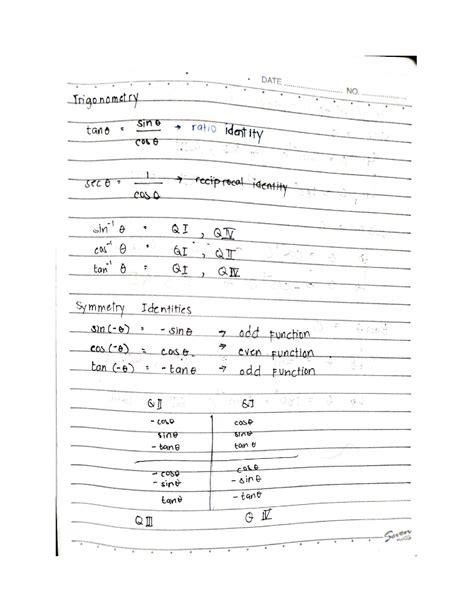 DATE
NO.
Trigonometry
tanθ = sinθ / cosθ → ratio identity
secθ = 1 / cosθ → reciprocal identity
sin⁻¹ θ = QI , QIV
cos⁻¹ θ = QI , QII
tan⁻¹ θ = QI , QIV
Symmetry Identities
sin(-θ) = -sinθ → odd function
cos(-θ) = cosθ → even function
tan(-θ) = -tanθ → odd function
QII QI
-cosθ cosθ
sinθ sinθ
-tanθ tanθ
-cosθ cosθ
-sinθ -sinθ
tanθ -tanθ
QIII Q IV